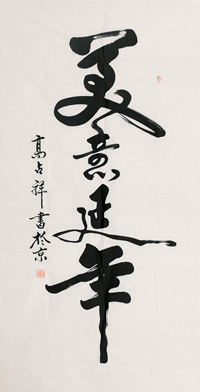 美意延年
高占祥書於京